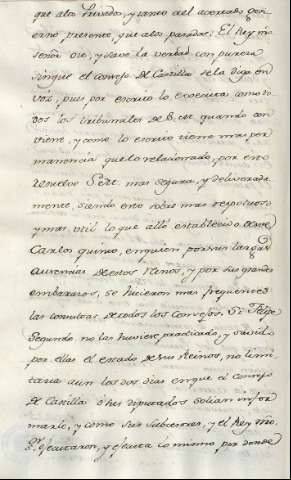 que alos Privados, y tanto al acertado Gov
erno presente, que alos pasados. El Rey nro
señor oie, y save la verdad con pureza
sinque el consejo de Castilla se la diga en
voz, pues por escrito lo executa como to
dos los tribunales de S. M. quando con
viene, y como lo escrito tiene mas per
manencia quelo relacionado, por esto
resuelve S. M. mas segura, y deliverada
mente, siendo esto sobre mas respetuoso
y mas util lo que alló establecido desde
Carlos quinto, enquien por sus largas
ausencias destos Reinos, y por sus grandes
embarazos, se hicieron mas frequentes
las consultas de todos los Consejos. Si Felipe
Segundo no las huviere practicado, y savido
por ellas el estado de sus Reinos, no limi
taria aun los dos dias enque el consejo
de Castilla o sus diputados solian infor
marle, y como sus subcesores, y el Rey nro.
Sr. executaron, y executa lo mismo por donde